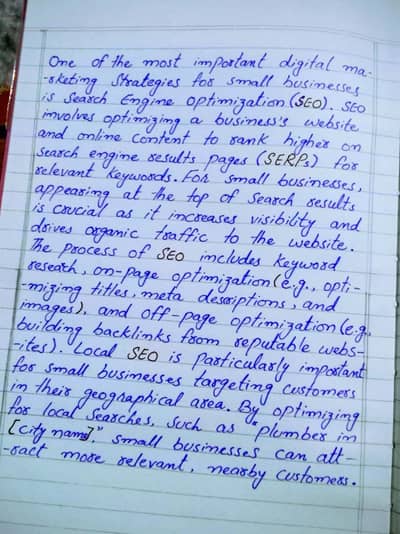 One of the most important digital ma-
-rketing strategies for small businesses
is Search Engine Optimization (SEO). SEO
involves optimizing a business's website
and online content to rank higher on
search engine results pages (SERPs) for
relevant keywords. For small businesses,
appearing at the top of search results
is crucial as it increases visibility and
drives organic traffic to the website.
The process of SEO includes keyword
reseach, on-page optimization (e.g., opti-
-mizing titles, meta desriptions, and
images), and off-page optimization (e.g.,
building backlinks from reputable webs-
-ites). Local SEO is particularly important
for small businesses targeting customers
in their geographical area. By optimizing
for local searches, such as "plumber in
[city name]," small businesses can att-
-ract more relevant, nearby customers.